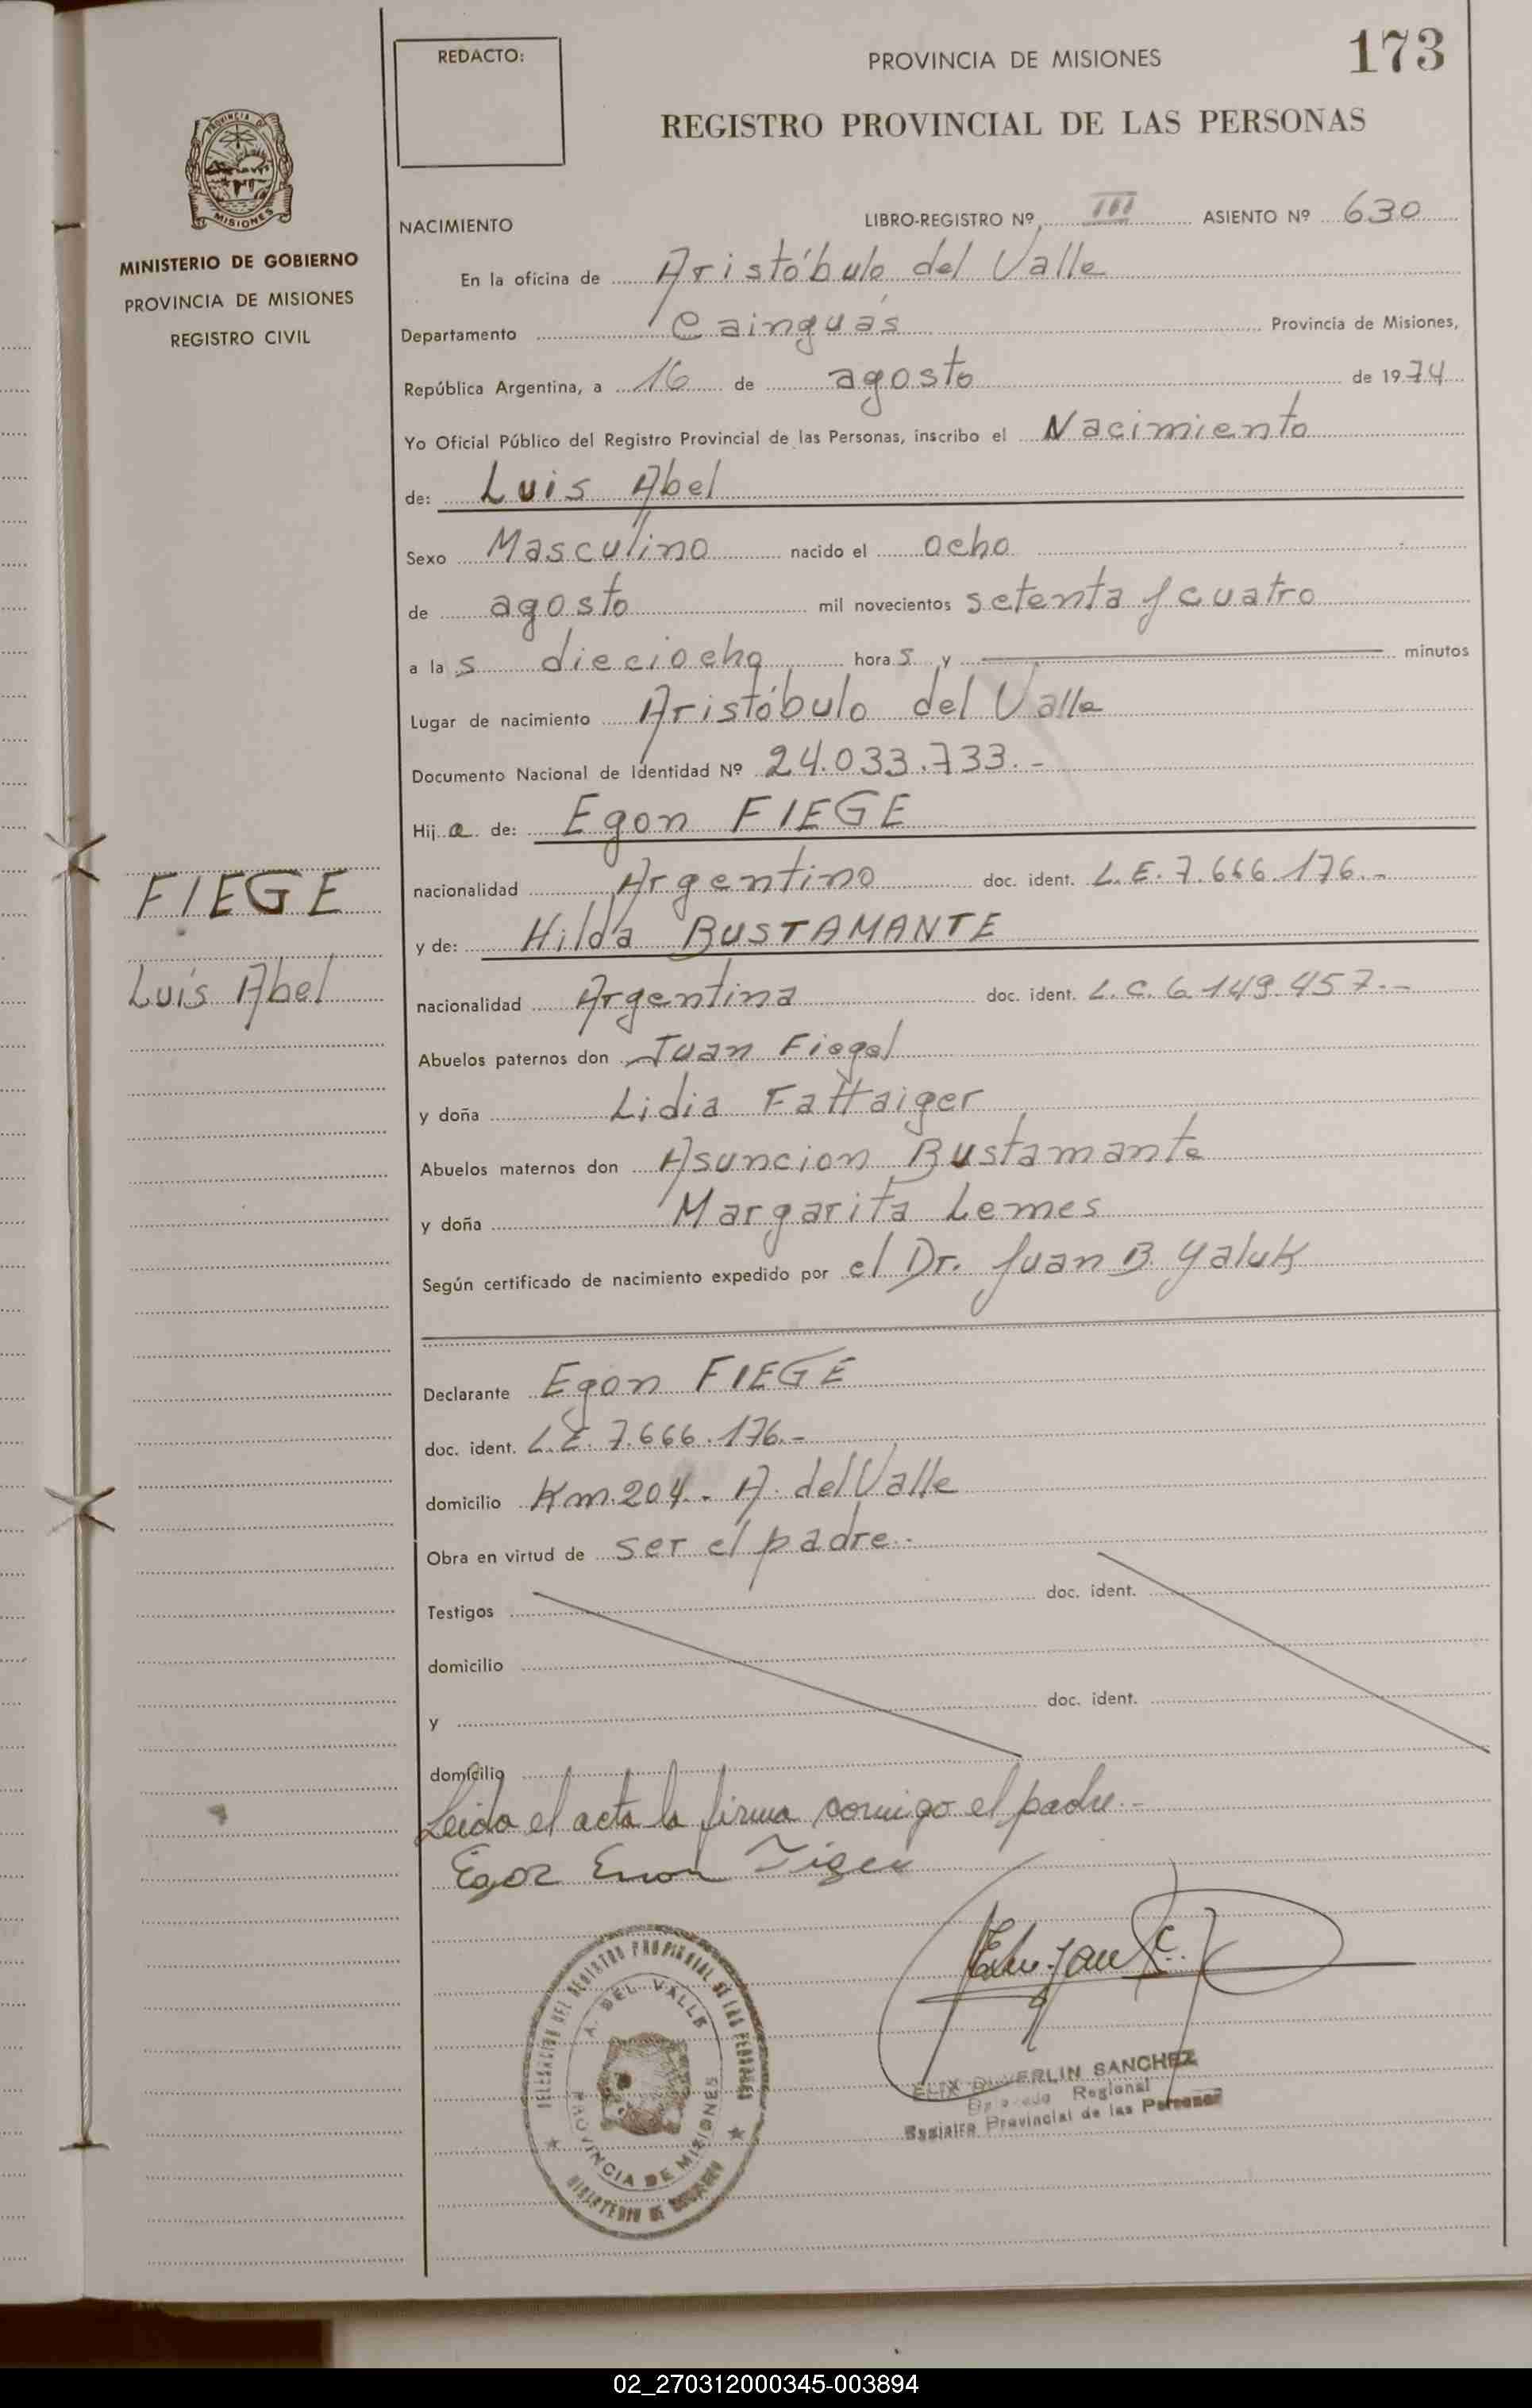 REDACTO:
PROVINCIA DE MISIONES
173
REGISTRO PROVINCIAL DE LAS PERSONAS
PROVINCIA DE
MISIONES
MINISTERIO DE GOBIERNO
PROVINCIA DE MISIONES
REGISTRO CIVIL
NACIMIENTO
LIBRO-REGISTRO Nº III ASIENTO Nº 630
En la oficina de Aristóbulo del Valle
Departamento Cainguás Provincia de Misiones,
República Argentina, a 16 de agosto de 1974
Yo Oficial Público del Registro Provincial de las Personas, inscribo el Nacimiento
de: Luis Abel
Sexo Masculino nacido el ocho
de agosto mil novecientos setenta y cuatro
a las dieciocho horas y minutos
Lugar de nacimiento Aristóbulo del Valle
Documento Nacional de Identidad Nº 24.033.733.-
Hij a de: Egon FIEGE
nacionalidad Argentino doc. ident. L.E. 7.666.176.-
FIEGE
y de: Hilda BUSTAMANTE
Luis Abel
nacionalidad Argentina doc. ident. L.C. 6.149.457.-
Abuelos paternos don Juan Fiegel
y doña Lidia Fattaiger
Abuelos maternos don Asuncion Bustamante
y doña Margarita Lemes
Según certificado de nacimiento expedido por el Dr. Juan B. Yaluk
Declarante Egon FIEGE
doc. ident. L.E. 7.666.176.-
domicilio Km. 204 - A. del Valle
Obra en virtud de ser el padre.-
Testigos doc. ident.
domicilio
y doc. ident.
domicilio
Leida el acta la firma conmigo el padre.-
DELEGACION DEL REGISTRO PROVINCIAL DE LAS PERSONAS
A. DEL VALLE
PROVINCIA DE MISIONES
MINISTERIO DE GOBIERNO
SANCHEZ
Regional
Registro Provincial de las Personas
02_270312000345-003894